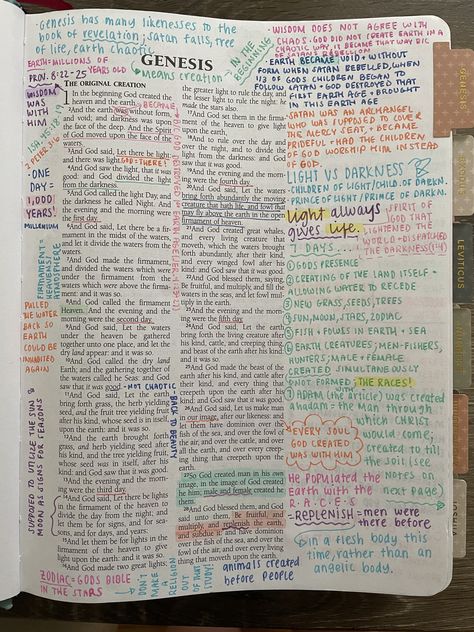 ·Genesis has many likenesses to the
book of revelation; satan falls, tree
of life, earth chaotic
EARTH = MILLIONS OF
YEARS OLD
PROV. 8:22-25
GENESIS
means creation
IN THE
BEGINNING
WISDOM
WAS
WITH
HIM
ISA. 45:18
· ONE
DAY =
1,000
YEARS!
MILLENNIUM
FIRMAMENT=
HEAVENS/
ATMOSPHERE
PULLED
THE WATER
BACK SO
EARTH
COULD BE
INHABITED
AGAIN
SUPPOSED TO UTILIZE THE SUN +
MOON AS SIGNS FOR SEASONS
THE ORIGINAL CREATION
IN the beginning God created
the heaven and the earth.
BECAME
2And the earth was without form,
and void; and darkness was upon
the face of the deep. And the Spirit
of God moved upon the face of the
waters.
3And God said, Let there be light:
and there was light.
GOD = THERE!
4And God saw the light, that it was
good: and God divided the light
from the darkness.
5And God called the light Day, and
the darkness he called Night. And
the evening and the morning were
the first day.
6And God said, Let there be a
firmament in the midst of the waters,
and let it divide the waters from the
waters.
7And God made the firmament,
and divided the waters which were
under the firmament from the
waters which were above the firma-
ment: and it was so.
8And God called the firmament
Heaven. And the evening and the
morning were the second day.
9And God said, Let the waters
under the heaven be gathered
together unto one place, and let the
dry land appear: and it was so.
10And God called the dry land
Earth; and the gathering together of
the waters called he Seas: and God
saw that it was good.
- NOT CHAOTIC
11And God said, Let the earth
bring forth grass, the herb yielding
seed, and the fruit tree yielding fruit
after his kind, whose seed is in itself,
upon the earth: and it was so.
12And the earth brought forth
grass, and herb yielding seed after
his kind, and the tree yielding fruit,
whose seed was in itself, after his
kind: and God saw that it was good.
13And the evening and the morn-
ing were the third day.
14And God said, Let there be lights
in the firmament of the heaven to
divide the day from the night; and
let them be for signs, and for sea-
sons, and for days, and years:
15And let them be for lights in the
firmament of the heaven to give
light upon the earth: and it was so.
·BACK TO BEAUTY
the greater light to rule the day, and
the lesser light to rule the night: he
made the stars also.
17And God set them in the firma-
ment of the heaven to give light
upon the earth,
18And to rule over the day and
over the night, and to divide the
light from the darkness: and God
saw that it was good.
19And the evening and the morn-
ing were the fourth day.
20And God said, Let the waters
bring forth abundantly the moving
creature that hath life, and fowl that
may fly above the earth in the open
firmament of heaven.
21And God created great whales,
and every living creature that
moveth, which the waters brought
forth abundantly, after their kind,
and every winged fowl after his
kind: and God saw that it was good.
22And God blessed them, saying,
Be fruitful, and multiply, and fill the
waters in the seas, and let fowl mul-
tiply in the earth.
23And the evening and the morn-
ing were the fifth day.
24And God said, Let the earth
bring forth the living creature after
his kind, cattle, and creeping thing,
and beast of the earth after his kind:
and it was so.
25And God made the beast of the
earth after his kind, and cattle after
their kind, and every thing that
creepeth upon the earth after his
kind: and God saw that it was good.
26And God said, Let us make man
in our image, after our likeness: and
let them have dominion over the
fish of the sea, and over the fowl of
the air, and over the cattle, and over
all the earth, and over every creep-
ing thing that creepeth upon the
earth.
27So God created man in his own
image, in the image of God created
he him; male and female created he
them.
28And God blessed them, and God
said unto them, Be fruitful, and
multiply, and replenish the earth,
and subdue it: and have dominion
over the fish of the sea, and over the
fowl of the air, and over every living
thing that moveth upon the earth.
·WISDOM DOES NOT AGREE WITH
CHAOS. GOD DID NOT CREATE EARTH IN A
CHAOTIC WAY, IT BECAME THAT WAY B/C
OF SATAN'S REBELLION
·EARTH BECAME VOID + WITHOUT
FORM WHEN SATAN REBELLED, WHEN
1/3 OF GODS CHILDREN BEGAN TO
FOLLOW SATAN + GOD DESTROYED THAT
FIRST EARTH AGE + BROUGHT
IN THIS EARTH AGE
·SATAN WAS AN ARCHANGEL
WHO WAS SUPPOSED TO COVER
THE MERCY SEAT, + BECAME
PRIDEFUL + HAD THE CHILDREN
OF GOD WORSHIP HIM INSTEAD
OF GOD.
·LIGHT VS DARKNESS
·CHILDREN OF LIGHT/CHILD. OF DARKN.
·PRINCE OF LIGHT/PRINCE OF DARKN.
light always
gives life.
SPIRIT OF
GOD THAT
LIGHTENED THE
WORLD + DISPATCHED
THE DARKNESS (1:4)
7 DAYS....
① GODS PRESENCE
② CREATING OF THE LAND ITSELF -
ALLOWING WATER TO RECEDE
③ NEW GRASS, SEEDS, TREES
④ SUN, MOON, STARS, ZODIAC
⑤ FISH + FOWLS IN EARTH + SEA
⑥ EARTH CREATURES; MEN-FISHERS,
HUNTERS; MALE + FEMALE
CREATED SIMULTANEOUSLY
NOT FORMED; THE RACES!
⑦ ADAM (WITH the article) was created
Ahadam = the man through
which CHRIST
would come;
created to till
the soil (see
notes on
next page)
EVERY SOUL
GOD CREATED
WAS WITH HIM
He populated the
Earth with the
R·A·C·E·S
-REPLENISH = men were
there before
in a flesh body this
time, rather than an
angelic body.
ZODIAC = GODS BIBLE
IN THE STARS
DON'T
MAKE
RELIGION
OUT
OF THAT
STUDY
animals created
before people
LEVITICUS